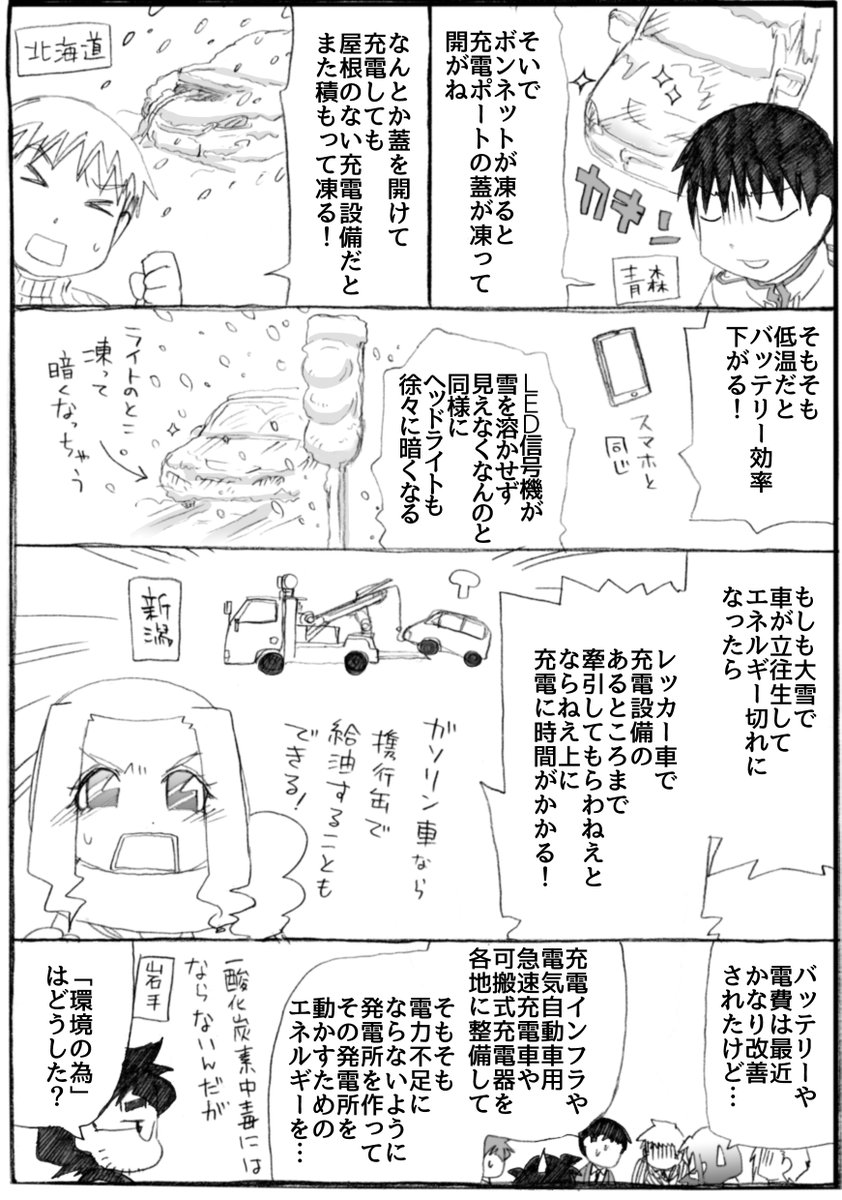 そいで
ボンネットが凍ると
充電ポートの蓋が凍って
開がね
カキン
青森
なんとか蓋を開けて
充電しても
屋根のない充電設備だと
また積もって凍る！
北海道
そもそも
低温だと
バッテリー効率
下がる！
スマホと
同じ
LED信号機が
雪を溶かせず
見えなくなんのと
同様に
ヘッドライトも
徐々に暗くなる
ライトのとこ
凍って
暗くなっちゃう
もしも大雪で
車が立往生して
エネルギー切れに
なったら
レッカー車で
充電設備の
あるところまで
牽引してもらわねえと
ならねえ上に
充電に時間がかかる！
新潟
ガソリン車なら
携行缶で
給油することも
できる！
バッテリーや
電費は最近
かなり改善
されたけど…
充電インフラや
電気自動車用
急速充電車や
可搬式充電器を
各地に整備して
そもそも
電力不足に
ならないように
発電所を作って
その発電所を
動かすための
エネルギーを…
一酸化炭素中毒には
ならないんだが
岩手
「環境の為」
はどうした？